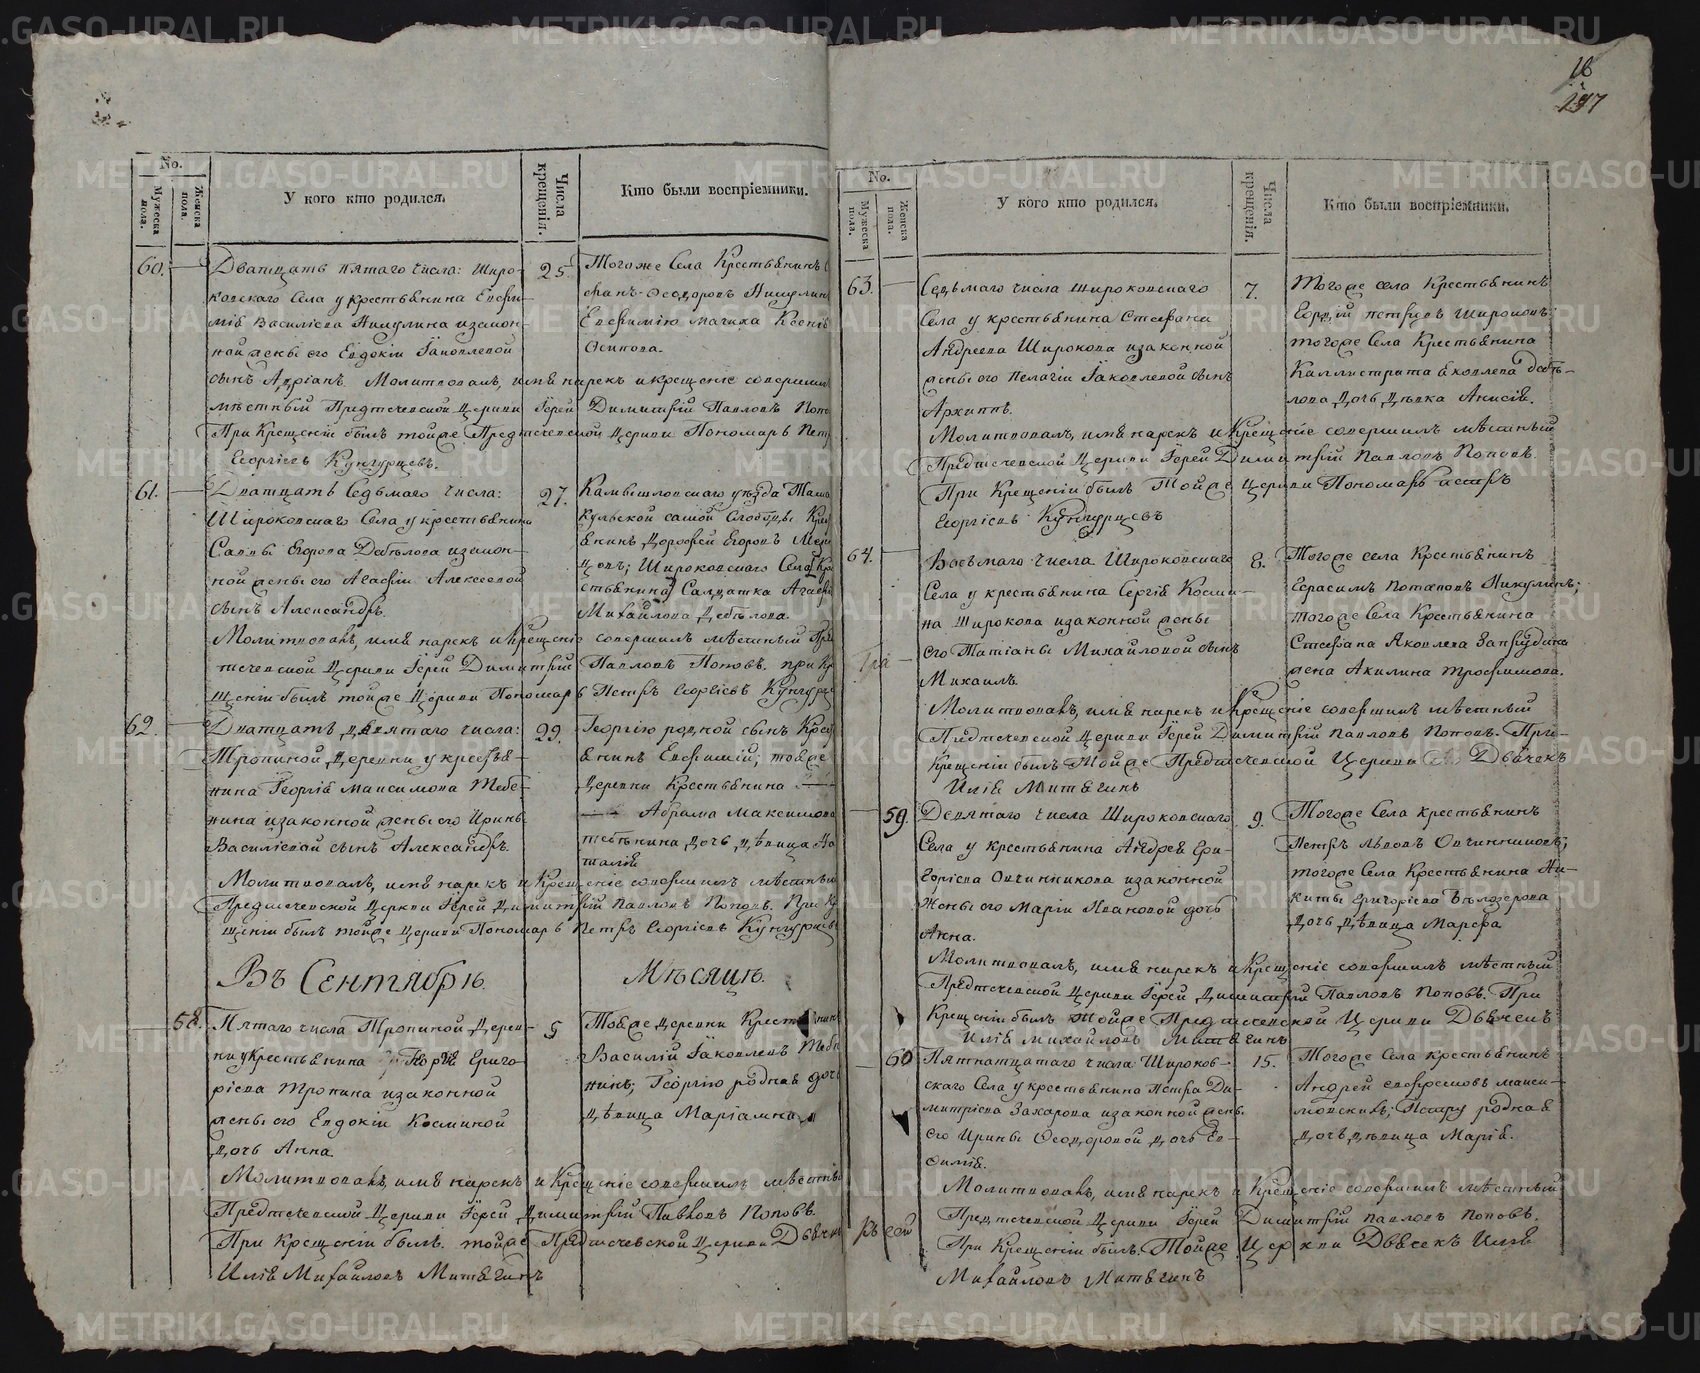 No.
Мужеска пола.
Женска пола.
У кого кто родился.
Числа крещенія.
Кто были воспріемники.
60.
Дватцать пятаго числа: Широ-
ковскаго Села у крестьянина Евфи-
мія Василіева Никулина изакон-
ной жены его Евдокіи Іаковлевой
сынъ Адріанъ. Молитвовалъ, имя нарекъ и крещеніе совершилъ
мѣстный Предтечевской Церкви Іерей Димитрій Павловъ
При Крещеніи былъ тойже Предтечевской Церкви Пономарь
Георгіевъ Кунгурцевъ.
25.
Тогоже Села Крестьянинъ
Ѳеодоровъ
Евфимію мачиха
Осипова.
61.
Дватцать Седьмаго числа:
Широковскаго Села у крестьянина
Саввы Егорова Дебѣлова изакон-
ной жены его Агафіи Алексеевой
сынъ Александръ.
27.
Камышловскаго уѣзда
самой Слободы
Дорофей Егоровъ
Широковскаго Села
Салдатка
Михайлова Дебѣлова.
Молитвовалъ, имя нарекъ и крещеніе совершилъ мѣстный
течевской Церкви Іерей Димитрій Павловъ Поповъ. при
щеніи былъ тойже Церкви Пономарь Петръ Георгіевъ
62.
Дватцать девятаго числа:
Тропиной Деревни у крестья-
нина Георгія Максимова Тебе-
нина изаконной жены его Ирины
Василіевой сынъ Александръ.
29.
Георгію родной сынъ
Евфимій; тойже
Деревни Крестьянина
Абрама Максимова
дочь дѣвица
талія
Молитвовалъ, имя нарекъ и Крещеніе совершилъ мѣстный
Предтечевской Церкви Іерей Димитрій Павловъ Поповъ. При
щеніи былъ тойже Церкви Пономарь Петръ Георгіевъ
Въ Сентябрѣ. Мѣсяцѣ.
58.
Пятаго числа Тропиной Дерев-
ни у Крестьянина Григо-
ріева Тропина изаконной
жены его Евдокіи Косминой
дочь Анна.
5
Тояже деревни
Василій Іаковлевъ
нинъ; Георгію родная дочь
дѣвица Маріамна.
Молитвовалъ, имя нарекъ и Крещеніе совершилъ мѣстный
Предтечевской Церкви Іерей Димитрій Павловъ Поповъ.
При Крещеніи былъ тойже Предтечевской Церкви
Илія Михайловъ Митягинъ
16
No.
Мужеска пола.
Женска пола.
У кого кто родился.
Числа крещенія.
Кто были воспріемники.
63.
Седьмаго числа Широковскаго
Села у крестьянина Стефана
Андреева Широкова изаконной
жены его Пелагіи Іаковлевой сынъ
Архиппъ.
7.
Тогоже села Крестьянинъ
Петровъ Широковъ:
тогоже Села Крестьянина
Каллистрата Яковлева Дебѣ-
лова дочь дѣвка Анисія.
Молитвовалъ, имя нарекъ и Крещеніе совершилъ мѣстный
Предтечевской Церкви Іерей Димитрій Павловъ Поповъ.
При Крещеніи былъ Тойже Церкви Пономарь Петръ
Георгіевъ Кунгурцевъ
64.
Восьмаго числа Широковскаго
Села у крестьянина Сергія Косми-
на Широкова изаконной жены
его Татіаны Михайловой сынъ
Михаилъ.
8.
Тогоже села Крестьянинъ
Герасимъ Потаповъ Никулинъ;
тогоже Села Крестьянина
Стефана Яковлева
жена Акилина Трофимова.
Молитвовалъ, имя нарекъ и Крещеніе совершилъ мѣстный
Предтечевской Церкви Іерей Димитрій Павловъ Поповъ. При-
Крещеніи былъ Тойже Предтечевской Церкви Дьячекъ
Илія Митягинъ
59.
Девятаго числа Широковскаго
Села у крестьянина Андрея Гри-
горіева Овчинникова изаконной
жены его Маріи Ивановой дочь
Анна.
9.
Тогоже Села крестьянинъ
Петръ Львовъ Овчинниковъ;
тогоже Села Крестьянина Ни-
киты Григоріева Бѣлозерова
дочь дѣвица Марфа
Молитвовалъ, имя нарекъ и Крещеніе совершилъ мѣстный
Предтечевской Церкви Іерей Димитрій Павловъ Поповъ. При
Крещеніи былъ тойже Предтечевской Церкви Дьячекъ
Илія Михайловъ Митягинъ
60
Пятнатцатаго числа Широков-
скаго Села у крестьянина Петра Ди-
митріева Захарова изаконной жены
его Ирины Ѳеодоровой дочь Ев-
фимія.
15.
Тогоже Села крестьянинъ
Андрей Евфремовъ
Петру родная
дочь дѣвица Марія.
Молитвовалъ, имя нарекъ и Крещеніе совершилъ мѣстный
Предтечевской Церкви Іерей Димитрій Павловъ Поповъ.
При Крещеніи былъ Тойже Церкви Дьячекъ Илія
Михайловъ Митягинъ
METRIKI.GASO-URAL.RU